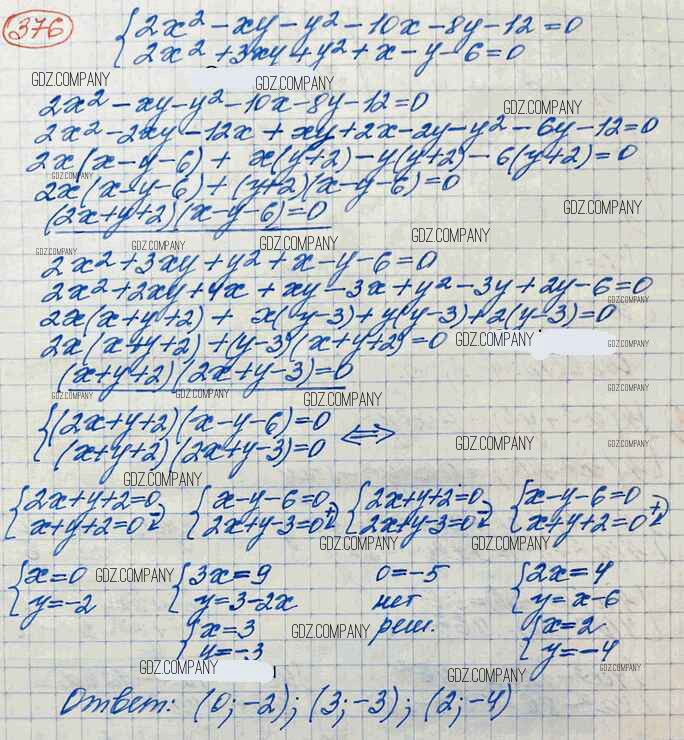 376
{2x² - xy - y² - 10x - 8y - 12 = 0
2x² + 3xy + y² + x - y - 6 = 0
GDZ.COMPANY GDZ.COMPANY
2x² - xy - y² - 10x - 8y - 12 = 0 GDZ.COMPANY
2x² - 2xy - 12x + xy + 2x - 2y - y² - 6y - 12 = 0
2x(x - y - 6) + x(y + 2) - y(y + 2) - 6(y + 2) = 0
GDZ.COMPANY
2x(x - y - 6) + (y + 2)(x - y - 6) = 0
(2x + y + 2)(x - y - 6) = 0 GDZ.COMPANY
GDZ.COMPANY GDZ.COMPANY GDZ.COMPANY GDZ.COMPANY
2x² + 3xy + y² + x - y - 6 = 0
2x² + 2xy + 4x + xy - 3x + y² - 3y + 2y - 6 = 0
GDZ.COMPANY
2x(x + y + 2) + x(y - 3) + y(y - 3) + 2(y - 3) = 0
2x(x + y + 2) + (y - 3)(x + y + 2) = 0 GDZ.COMPANY GDZ.COMPANY
(x + y + 2)(2x + y - 3) = 0
GDZ.COMPANY GDZ.COMPANY GDZ.COMPANY GDZ.COMPANY
{(2x + y + 2)(x - y - 6) = 0
(x + y + 2)(2x + y - 3) = 0 ⟺ GDZ.COMPANY GDZ.COMPANY
GDZ.COMPANY
{2x + y + 2 = 0 {x - y - 6 = 0 {2x + y + 2 = 0 {x - y - 6 = 0
x + y + 2 = 0 - 2x + y - 3 = 0 + 2x + y - 3 = 0 - x + y + 2 = 0 +
GDZ.COMPANY GDZ.COMPANY
{x = 0 GDZ.COMPANY {3x = 9 0 = -5 {2x = 4
y = -2 y = 3 - 2x нет y = x - 6
{x = 3 GDZ.COMPANY реш. {x = 2
y = -3 y = -4
GDZ.COMPANY GDZ.COMPANY GDZ.COMPANY
Ответ: (0; -2); (3; -3); (2; -4)